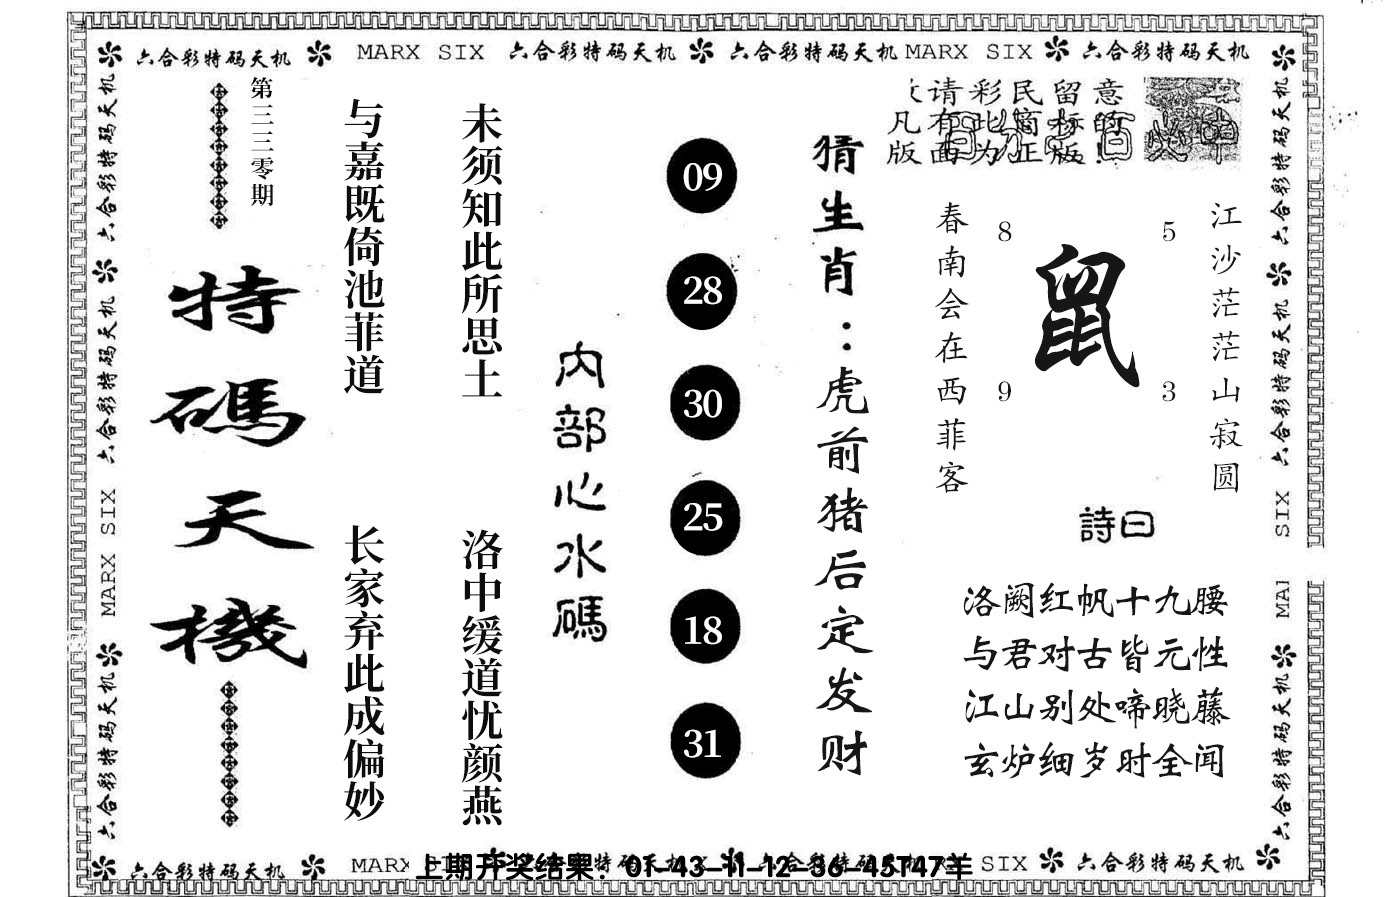 六合彩特码天机 MARX SIX 六合彩特码天机 六合彩特码天机 MARX SIX 六合彩特码天机
意的!
留标版
民窗正
彩此为
请有面
凡版
江沙茫茫山寂圆
5
3
鼠
8
9
春南会在西菲客
詩曰
洛阙红帆十九腰
与君对古皆元性
江山别处啼晓藤
玄炉细岁时全闻
猜生肖:虎前猪后定发财
09
28
30
25
18
31
内部心水碼
未须知此所思土
洛中缓道忧颜燕
与嘉既倚池菲道
长家弃此成偏妙
第三三零期
特碼天機
六合彩特码天机
六合彩特码天机
MARX SIX
六合彩特码天机
六合彩特码天机
六合彩特码天机
SIX
MAI
六合彩特码天机
六合彩特码天机 MARX
上期开奖结果：01-43-11-12-36-45T47羊
SIX 六合彩特码天机